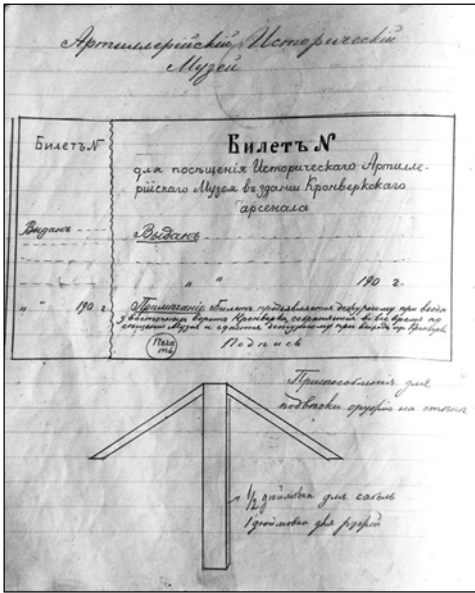 Артиллерійскій Историческій
Музей
Билетъ N
Билетъ N
для посѣщенія Историческаго Артилле-
рійскаго Музея въ зданіи Кронверкскаго
арсенала
Выданъ
Выданъ
" " 190 г.
" " 190 г.
Примѣчаніе Билетъ предъявляется дежурному при входѣ
у восточныхъ воротъ Кронверка, сохраняется во все время по
сѣщенія Музея и сдается дежурному при выходѣ изъ Кронверка
Печа
ть
Подпись
Приспособленія для
подвѣски оружія на стѣнѣ
1/2 дюймовка для сабель
1 дюймовка для ружей